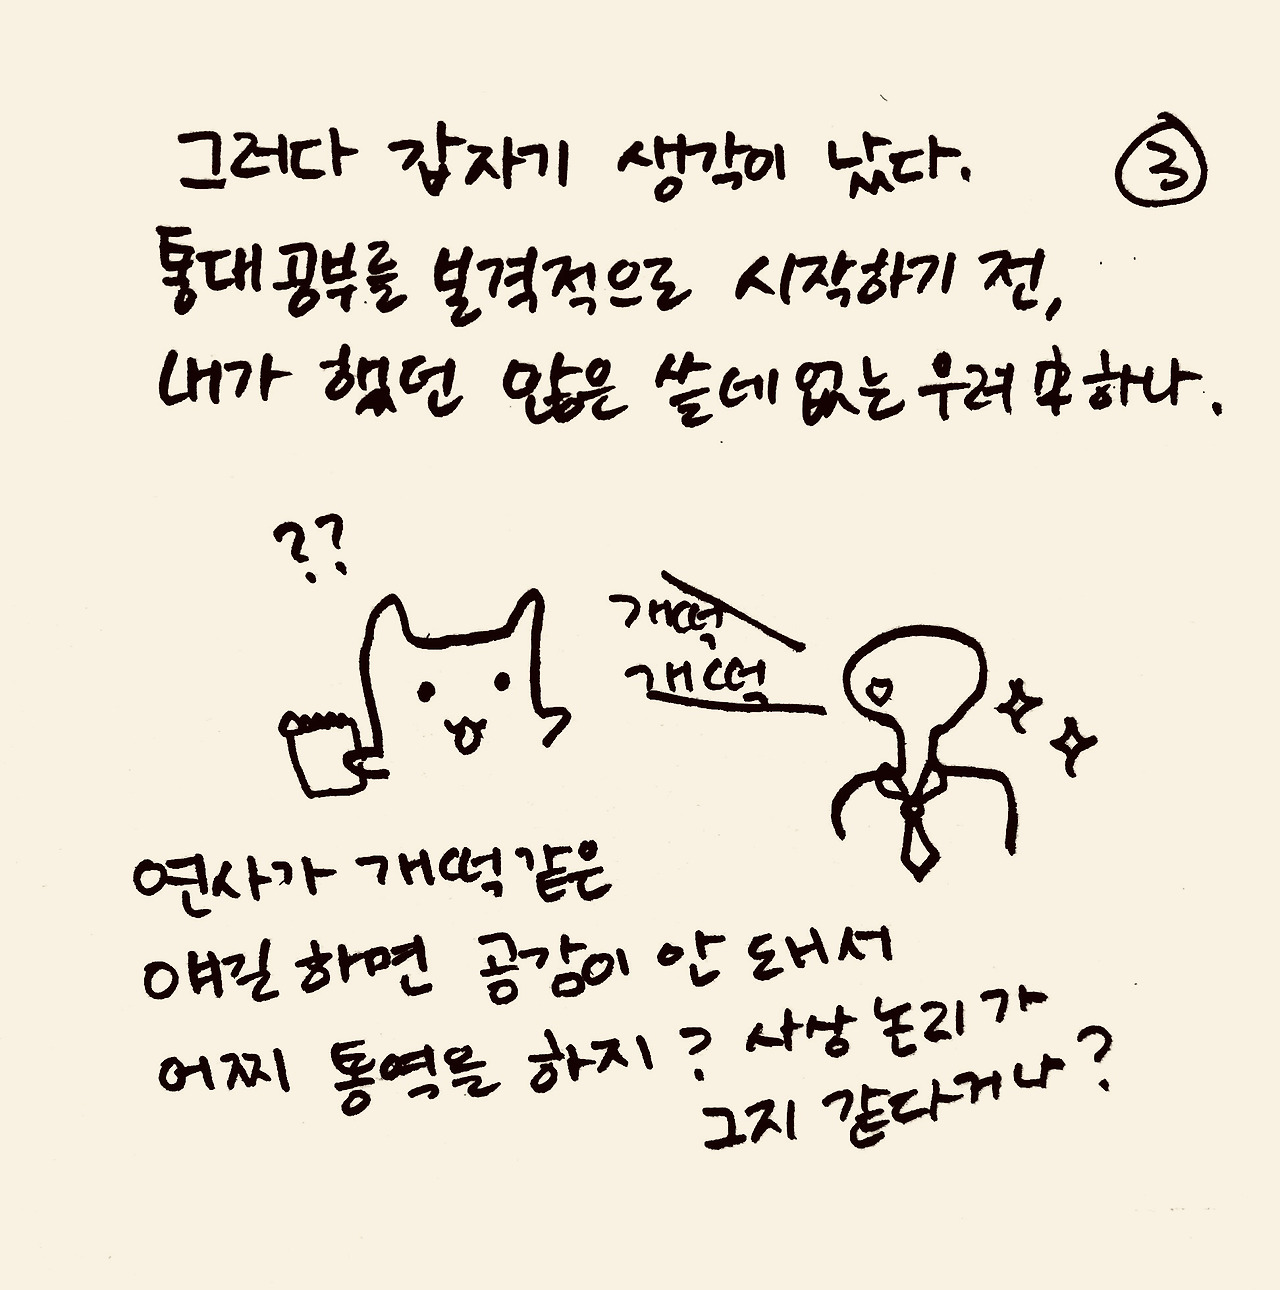 그러다 갑자기 생각이 났다.
③
통대 공부를 본격적으로 시작하기 전,
내가 했던 많은 쓸데없는 우려 中 하나.
??
개떡
개떡
연사가 개떡같은
얘길 하면 공감이 안 돼서
어찌 통역을 하지? 사상 논리가
그지 같다거나?